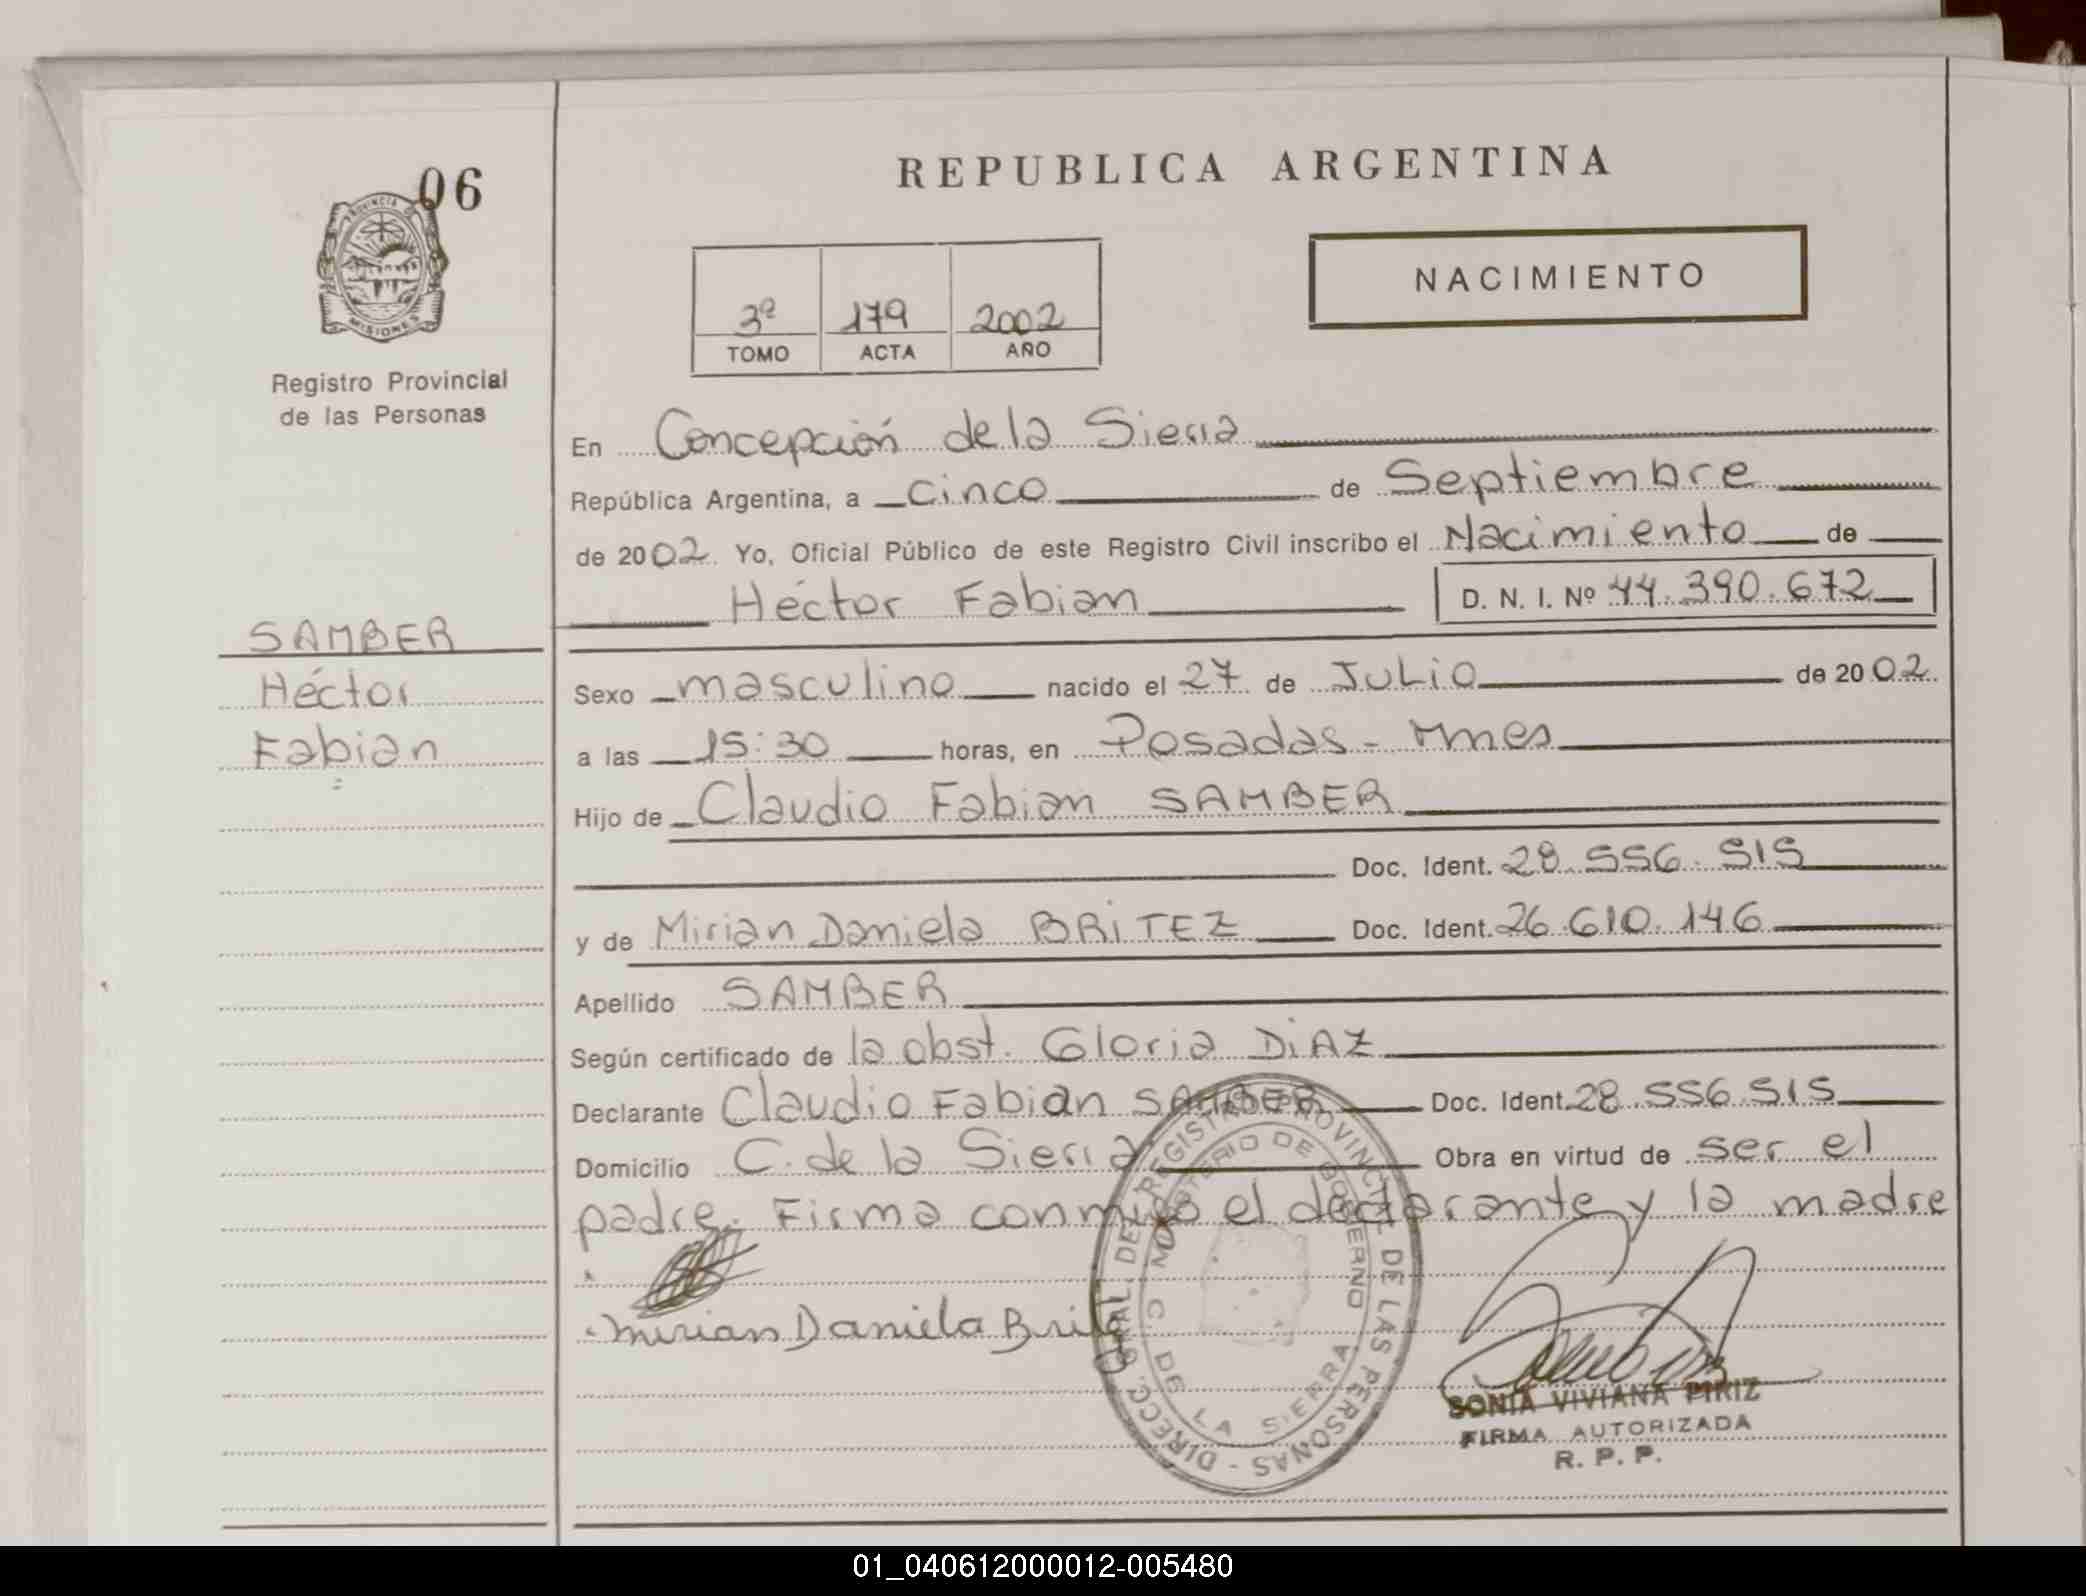 06
PROVINCIA DE
MISIONES
Registro Provincial
de las Personas
SAMBER
Héctor
Fabian
REPUBLICA ARGENTINA
3º 179 2002
TOMO ACTA AÑO
NACIMIENTO
En Concepción de la Sierra
República Argentina, a cinco de Septiembre
de 2002. Yo, Oficial Público de este Registro Civil inscribo el Nacimiento de
Héctor Fabian D. N. I. Nº 44.390.672
Sexo masculino nacido el 27 de JULIO de 2002.
a las 15:30 horas, en Posadas - Mnes
Hijo de Claudio Fabian SAMBER
Doc. Ident. 28.556.515
y de Mirian Daniela BRITEZ Doc. Ident. 26.610.146
Apellido SAMBER
Según certificado de la obst. Gloria DIAZ
Declarante Claudio Fabian SAMBER Doc. Ident. 28.556.515
Domicilio C. de la Sierra Obra en virtud de ser el
padre. Firma conmigo el declarante y la madre
Mirian Daniela Brite
DIRECC. GRAL. DEL REGISTRO PROVINCIAL DE LAS PERSONAS -
MINISTERIO DE GOBIERNO
C. DE LA SIERRA
SONIA VIVIANA PIRIZ
FIRMA AUTORIZADA
R. P. P.
01_040612000012-005480